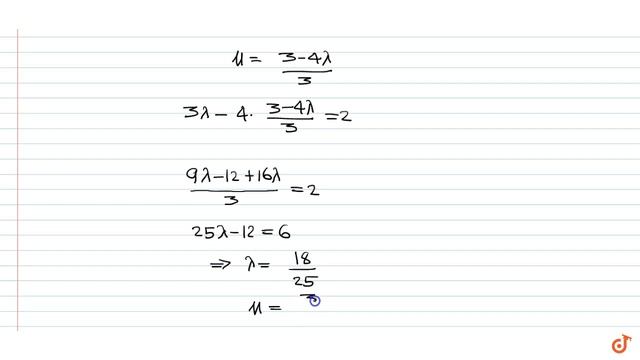 μ = (3-4λ)/3
3λ - 4· (3-4λ)/3 = 2
(9λ-12+16λ)/3 = 2
25λ-12 = 6
⇒ λ = 18/25
μ =